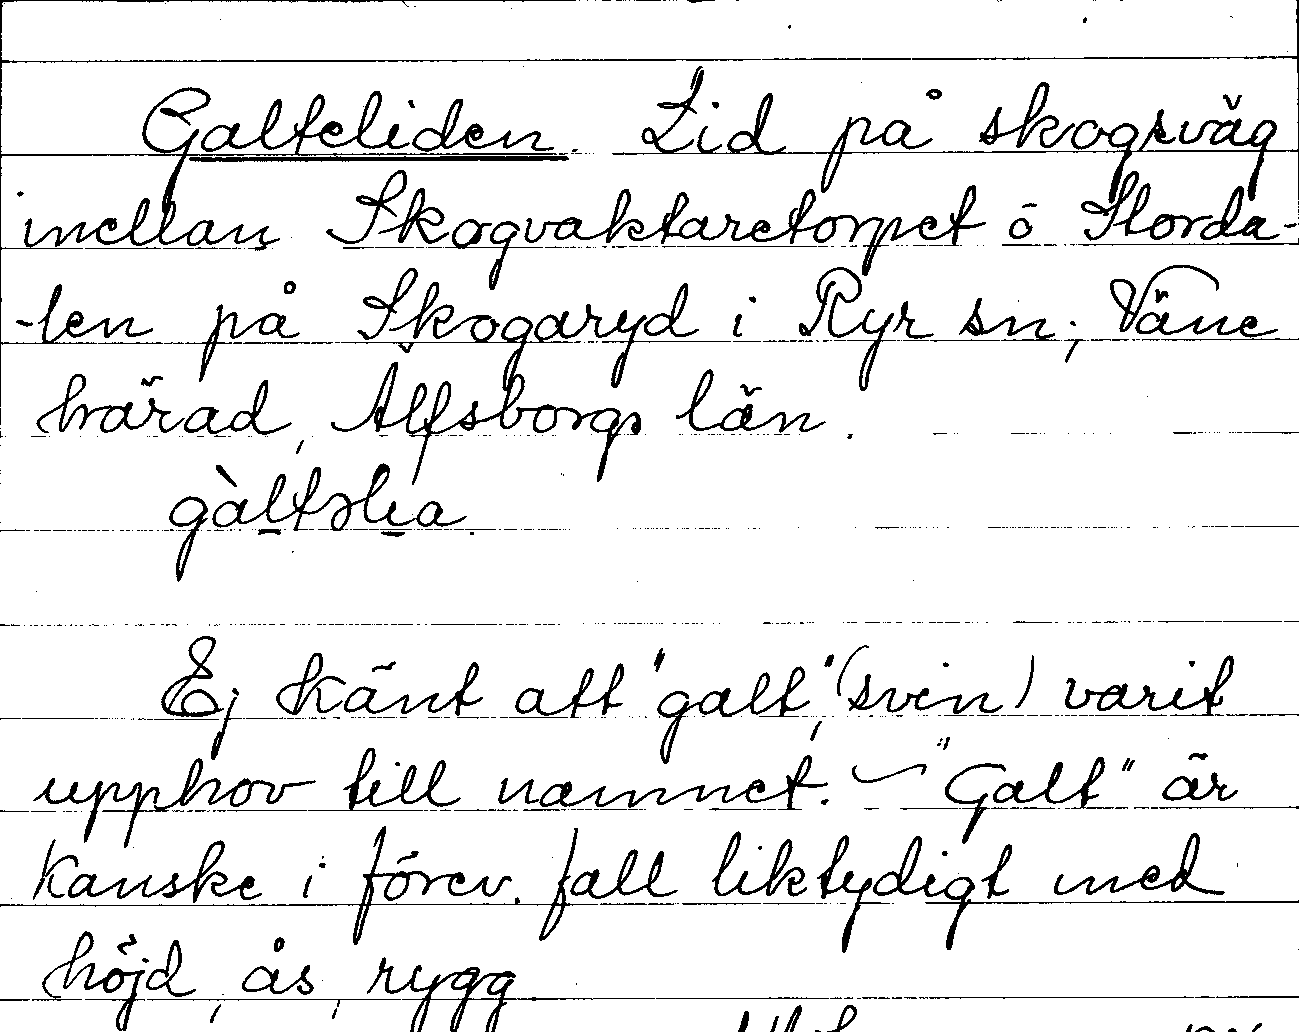 Galteliden. Lid på skogsväg
inellan Skogvaktaretorpet ö Storda-
-len på Skogaryd i Ryr sn; Väne
härad, Älfsborgs län.
gàltəlia.
Ej känt att "galt", (svin) varit
upphov till namnet. – "Galt" är
kanske i förev. fall liktydigt med
höjd, ås, rygg.